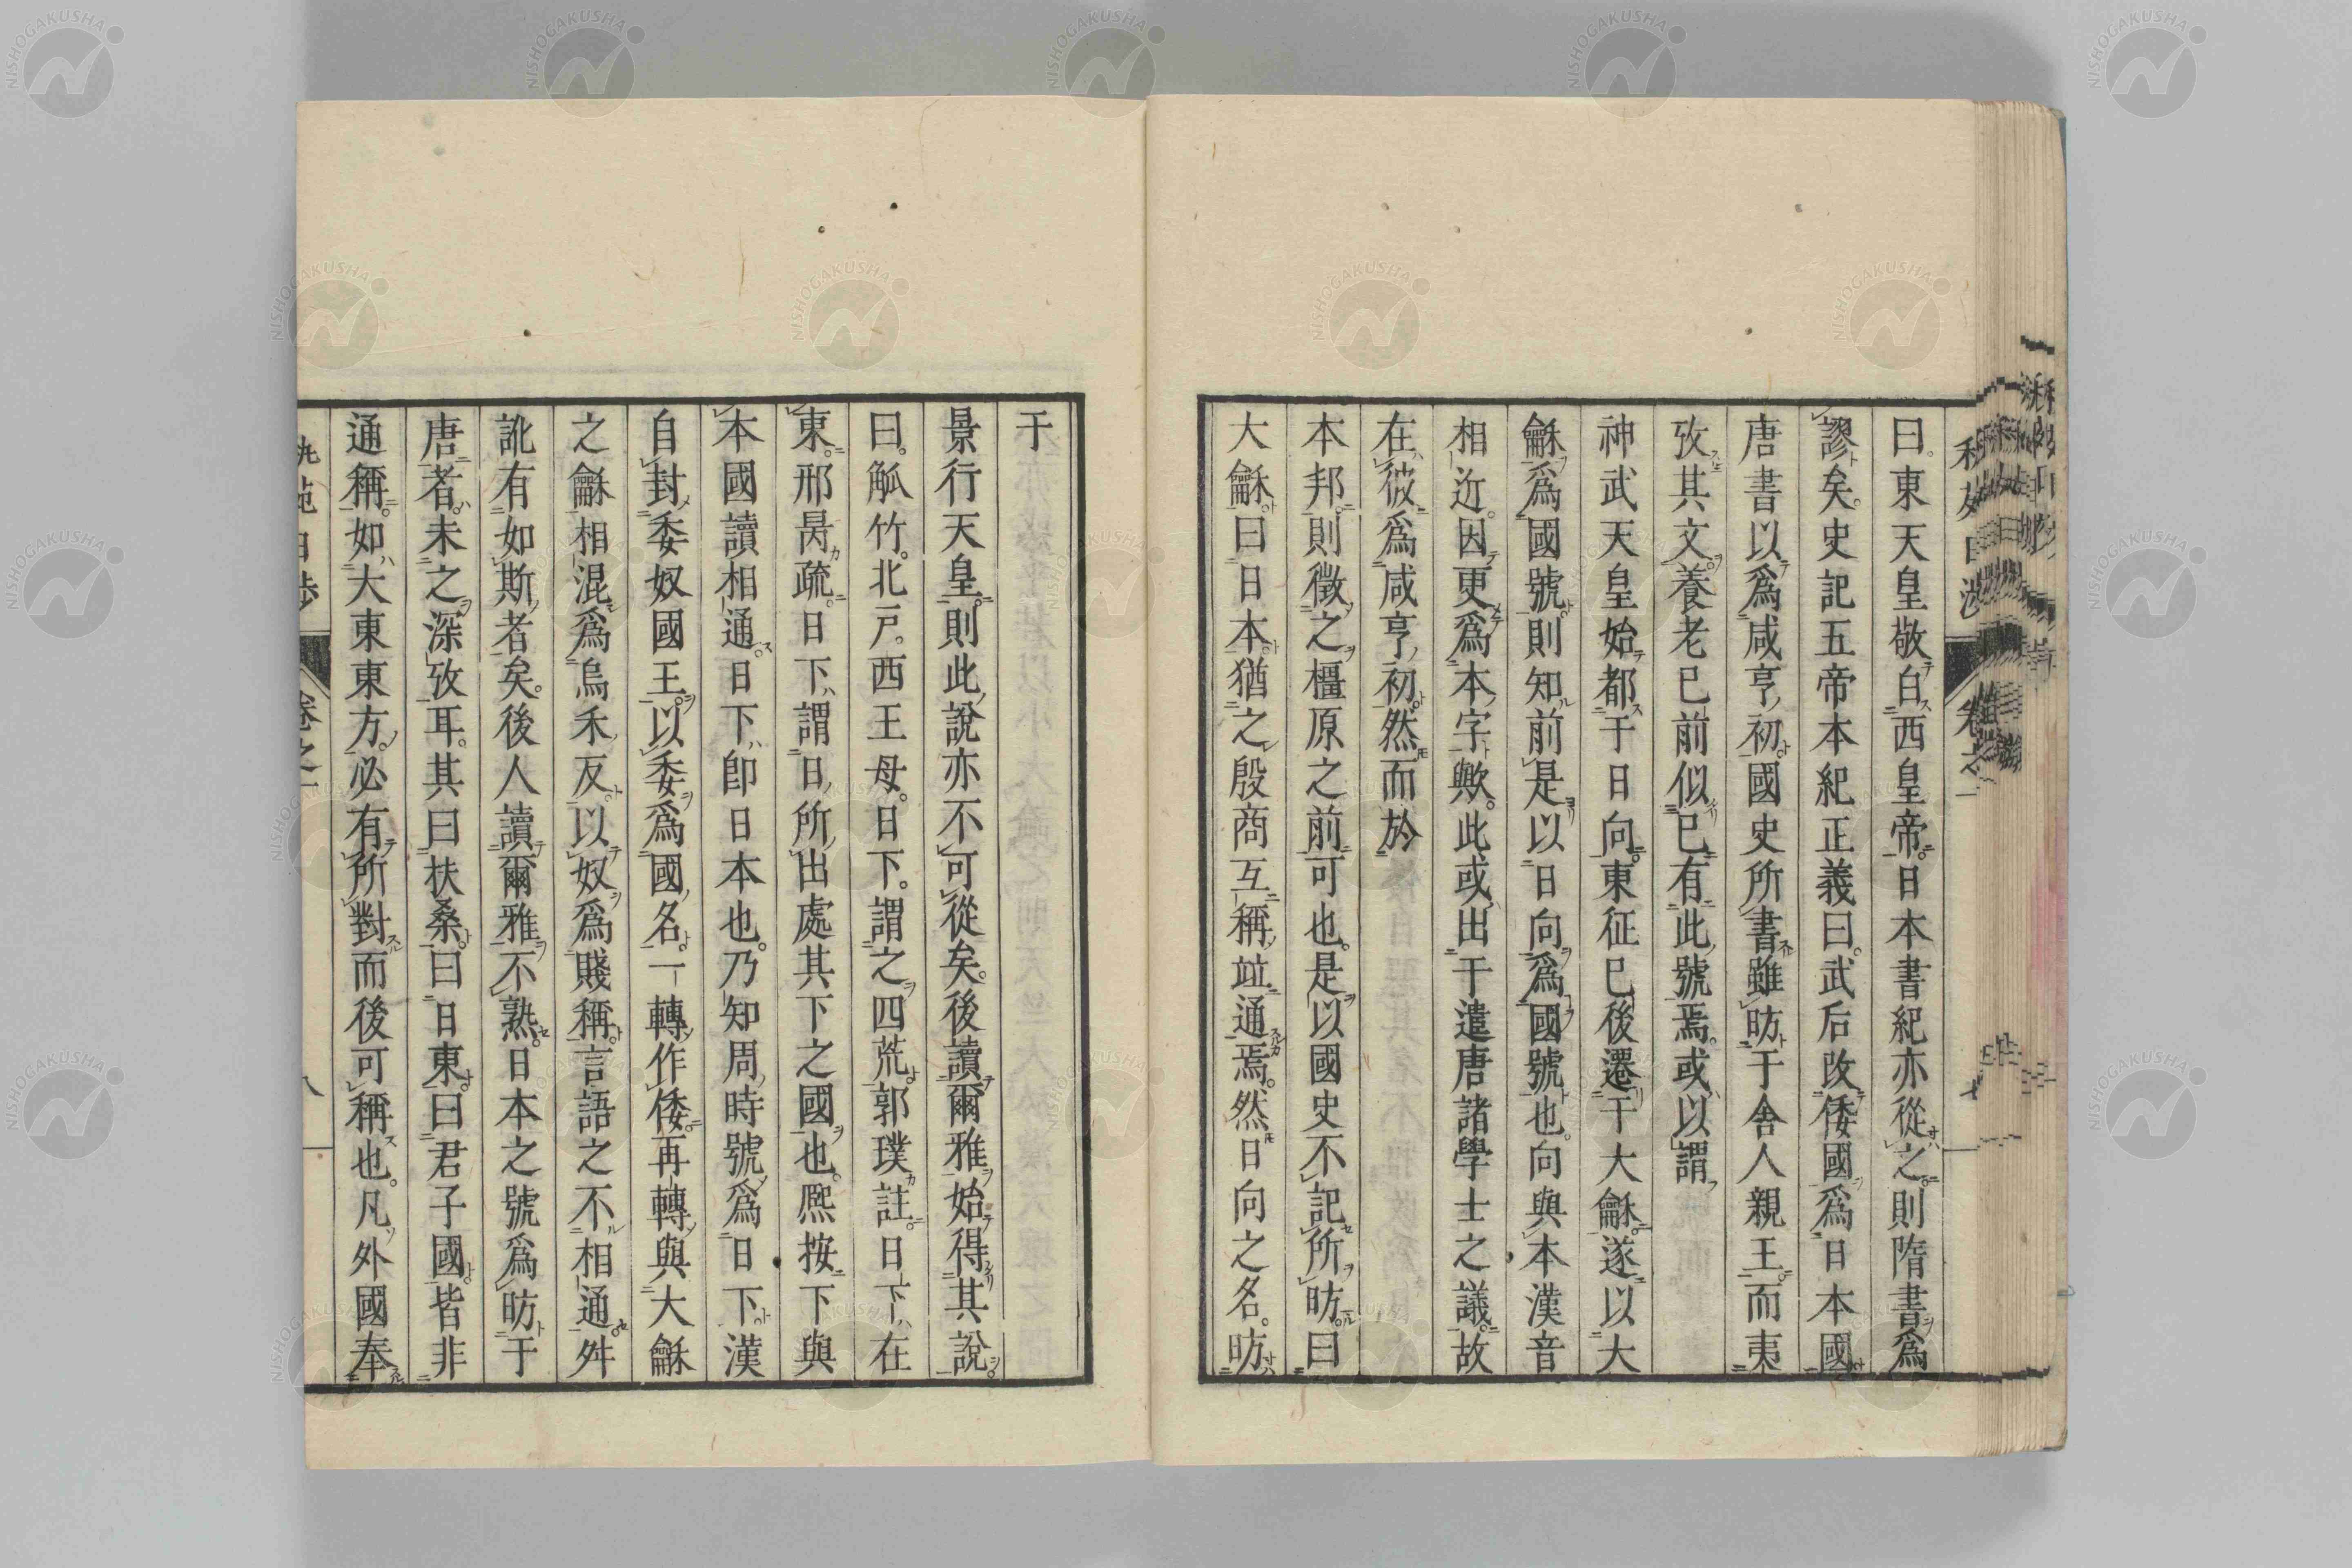 曰。東天皇敬白西皇帝。日本書紀亦從之。則隋書爲
謬矣。史記五帝本紀正義曰。武后改倭國爲日本國
唐書以爲咸亨初。國史所書雖昉于舍人親王。而夷
攷其文。養老已前似已有此號焉。或以謂
神武天皇始都于日向。東征已後遷于大龢。遂以大
龢爲國號。則知前是以日向爲國號也。向與本漢音
相近。因更爲本字歟。此或出于遣唐諸學士之議。故
在彼爲咸亨初。然而於
本邦。則徵之橿原之前可也。是以國史不記所昉。曰
大龢。曰日本。猶之殷商互稱竝通焉。然日向之名。昉
于
景行天皇。則此說亦不可從矣。後讀爾雅始得其說。
曰。觚竹。北戶。西王母。日下。謂之四荒。郭璞註。日下在
東。邢昺疏。日下謂日所出處其下之國也。熈按下與
本國讀相通。日下卽日本也。乃知周時號爲日下。漢
自封委奴國王。以委爲國名。一轉作倭。再轉與大龢
之龢相混爲烏禾反。以奴爲賤稱。言語之不相通舛
訛有如斯者矣。後人讀爾雅不熟。日本之號爲昉于
唐者。未之深攷耳。其曰扶桑。曰日東。曰君子國。皆非
通稱。如大東東方。必有所對而後可稱也。凡外國奉
卷之一
七
八
NISHOGAKUSHA